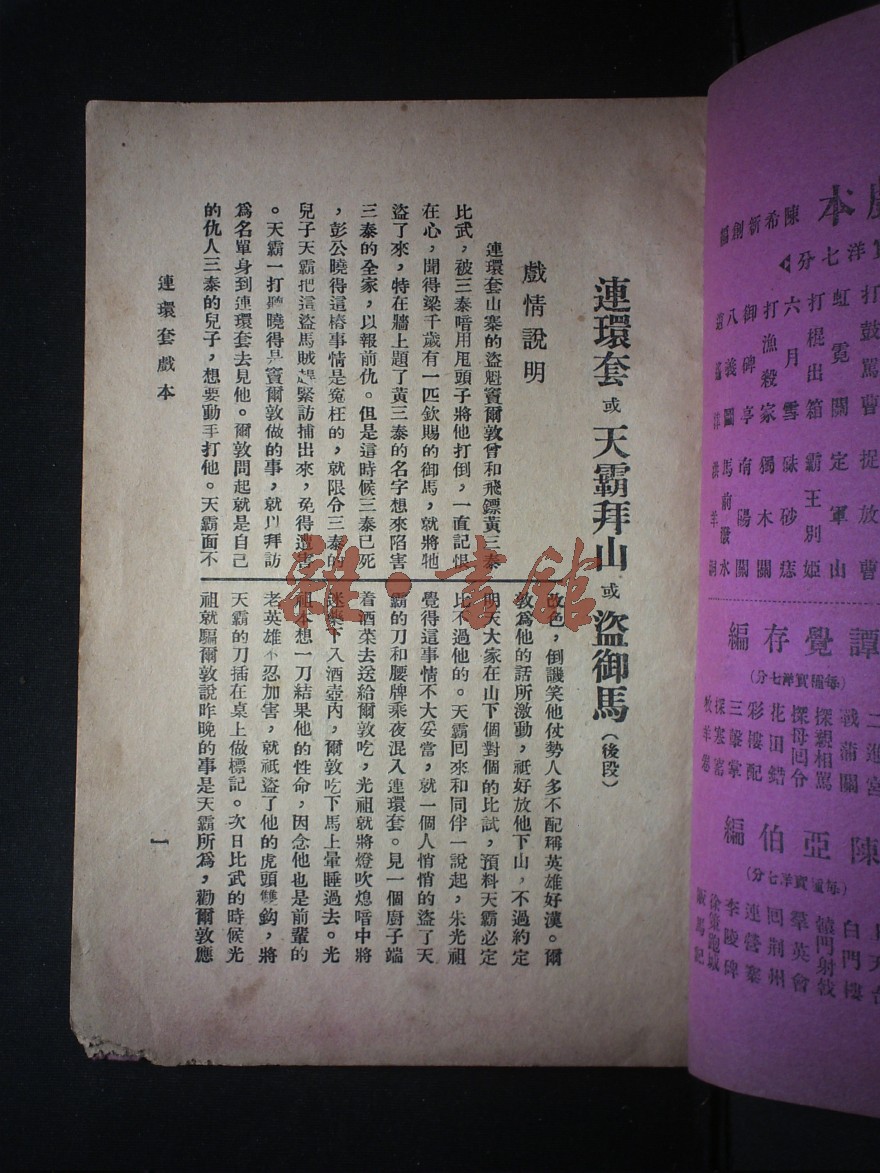 連環套或天霸拜山或盜御馬(後段)
戲情說明
連環套山寨的盜魁竇爾敦曾和飛鏢黃三泰
比武，被三泰暗用甩頭子將他打倒，一直記恨
在心，聞得梁千歲有一匹欽賜的御馬，就將牠
盜了來，特在牆上題了黃三泰的名字想來陷害
三泰的全家，以報前仇。但是這時候三泰已死
，彭公曉得這樁事情是冤枉的，就限令三泰的
兒子天霸把這盜馬賊趕緊訪捕出來，免得遭害
。天霸一打聽曉得是竇爾敦做的事，就以拜訪
爲名單身到連環套去見他。爾敦問起就是自己
的仇人三泰的兒子，想要動手打他。天霸面不
改色，倒譏笑他仗勢人多不配稱英雄好漢。爾
敦爲他的話所激動，祇好放他下山，不過約定
明天大家在山下個對個的比試，預料天霸必定
比不過他的。天霸回來和同伴一說起，朱光祖
覺得這事情不大妥當，就一個人悄悄的盜了天
霸的刀和腰牌乘夜混入連環套。見一個廚子端
着酒菜去送給爾敦吃，光祖就將燈吹熄暗中將
迷藥下入酒壺內，爾敦吃下馬上暈睡過去。光
祖本想一刀結果他的性命，因念他也是前輩的
老英雄不忍加害，就祇盜了他的虎頭雙鈎，將
天霸的刀插在桌上做標記。次日比武的時候光
祖就騙爾敦說昨晚的事是天霸所爲，勸爾敦應
連環套戲本
一
雜·書館
戲本
陳希新創編
實洋七分
打鼓罵曹 捉放曹
虹霓關 定軍山
打棍出箱 霸王別姬
六月雪 硃砂痣
打漁殺家 獨木關
御碑亭 南陽關
八義圖 馬前潑水
洪羊洞
譚覺存編
(每冊實洋七分)
二進宮
戰蒲關
探親相罵
探母回令
花田錯
彩樓配
三擊掌
探寒窰
牧羊卷
陳亞伯編
(每冊實洋七分)
白門樓
轅門射戟
羣英會
回荆州
連營寨
李陵碑
徐策跑城
販馬記